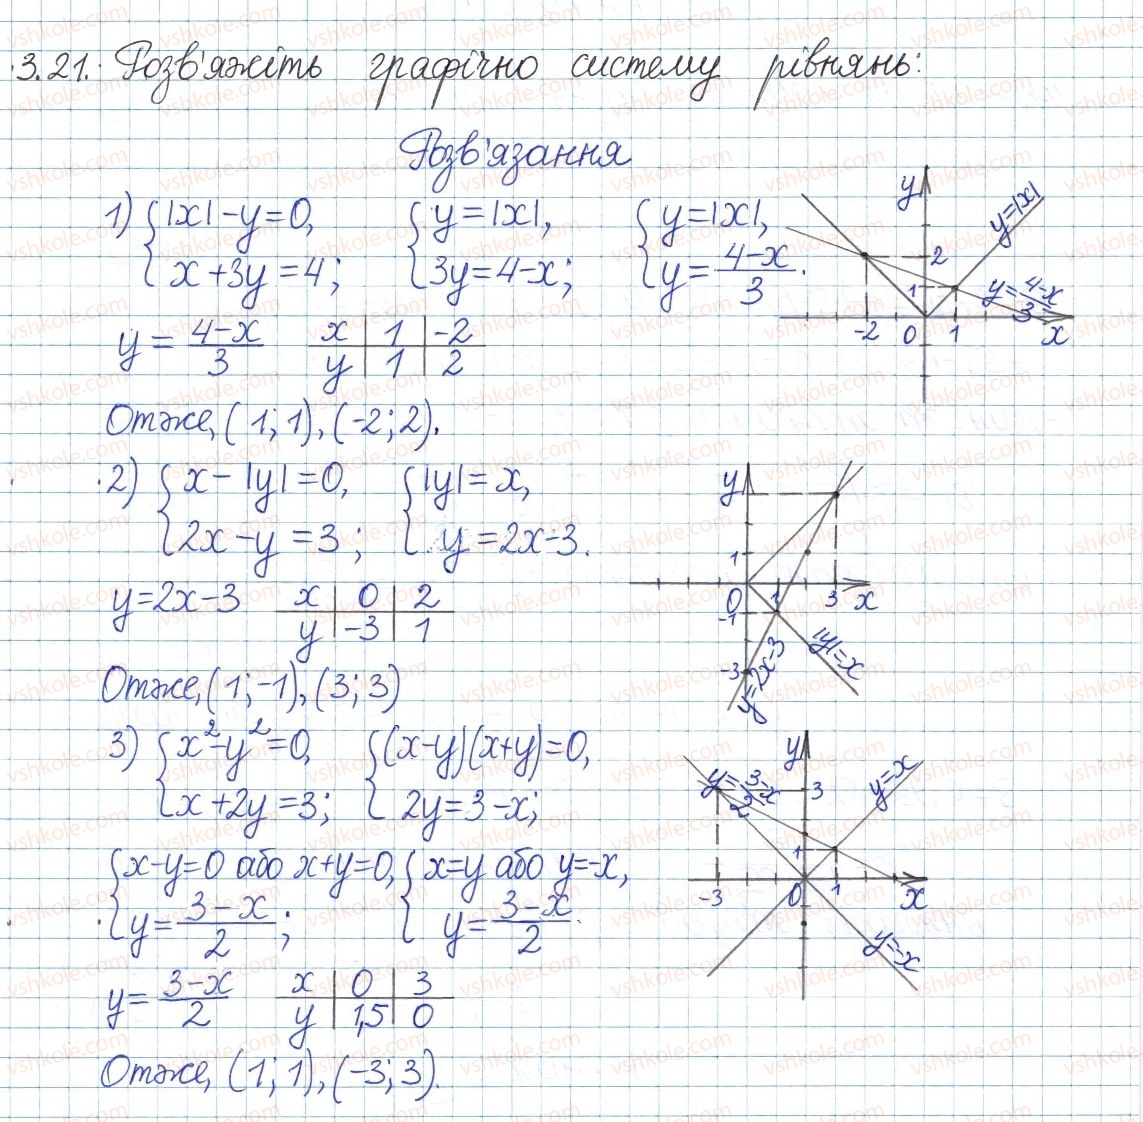 3.21. Розв'яжіть графічно систему рівнянь:
Розв'язання
1) { |x| - y = 0, x + 3y = 4; { y = |x|, 3y = 4 - x; { y = |x|, y = (4-x)/3.
y = (4-x)/3
x | 1 | -2
y | 1 | 2
Отже, (1; 1), (-2; 2).
y
y=|x|
2
1
y = (4-x)/3
-2 0 1 x
2) { x - |y| = 0, 2x - y = 3; { |y| = x, y = 2x - 3.
y = 2x - 3
x | 0 | 2
y | -3 | 1
Отже, (1; -1), (3; 3)
y
1
0 1 3 x
-1
-3
y=2x-3
|y|=x
3) { x² - y² = 0, x + 2y = 3; { (x-y)(x+y) = 0, 2y = 3 - x;
{ x - y = 0 або x + y = 0, y = (3-x)/2; { x = y або y = -x, y = (3-x)/2.
y = (3-x)/2
x | 0 | 3
y | 1,5 | 0
Отже, (1; 1), (-3; 3).
y
y = (3-x)/2
3
y=x
1
-3 0 1 x
y=-x
vshkole.com